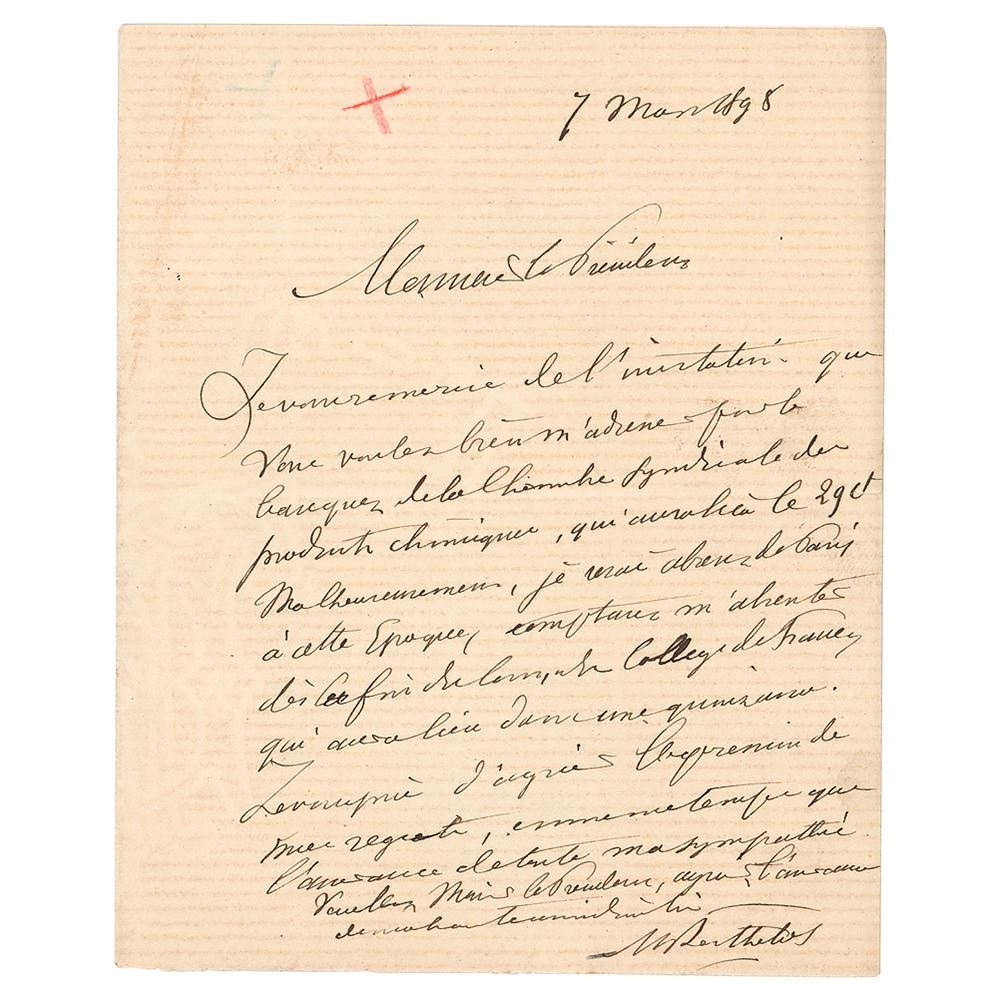 7 Mars 1898
Monsieur le Président
Je vous remercie de l'invitation que
vous voulez bien m'adresser pour le
banquet de la Chambre syndicale des
produits chimiques, qui aura lieu le 29 ct
Malheureusement, je serai absent de Paris
à cette Epoque, comptant m'absenter
dès la fin du cours, du Collège de France,
qui aura lieu dans une quinzaine.
Je vous prie d'agréer l'expression de
mes regrets, en même temps que
l'assurance de toute ma sympathie
Veuillez Monsieur le Président, agréer l'assurance
de ma haute considération
M Berthelot